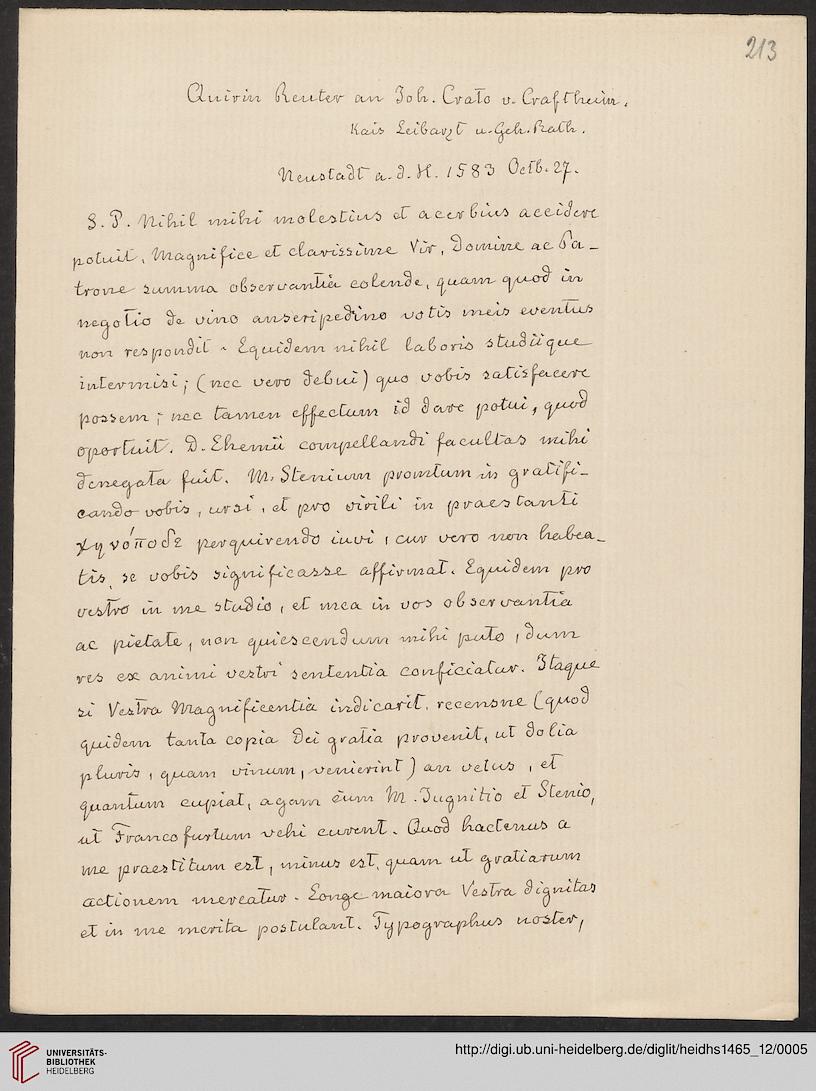 213
Quirin Reuter an Joh. Crato v. Craftheim,
Kais Leibarzt u. Geh. Rath.
Neustadt a. d. H. 1583 Octb. 27.
S. P. Nihil mihi molestius et acerbius accidere
potuit, Magnifice et clarissime Vir, Domine ac Pa-
trone summa observantia colende, quam quod in
negotio de vino anseripedino votis meis eventus
non respondit. Equidem nihil laboris studiique
intermisi; (nec vero debui) quo vobis satisfacere
possem; nec tamen effectum id dare potui, quod
oportuit. D. Ehemii compellandi facultas mihi
denegata fuit. M. Stenium promtum in gratifi-
cando vobis, ursi, et pro virili in praestanti
χηνόποδε perquirendo iuvi, cur vero non habea-
tis, se vobis significasse affirmat. Equidem pro
vestro in me studio, et mea in vos observantia
ac pietate, non quiescendum mihi puto, dum
res ex animi vestri sententia conficiatur. Itaque
si Vestra Magnificentia indicarit, recensne (quod
quidem tanta copia Dei gratia provenit, ut dolia
pluris, quam vinum, venierint) an vetus, et
quantum cupiat, agam cum M. Jugnitio et Stenio,
ut Francofurtum vehi curent. Quod hactenus a
me praestitum est, minus est, quam ut gratiarum
actionem mereatur. Longe maiora Vestra dignitas
et in me merita postulant. Typographus noster,
UNIVERSITÄTS-
BIBLIOTHEK
HEIDELBERG
http://digi.ub.uni-heidelberg.de/diglit/heidhs1465_12/0005